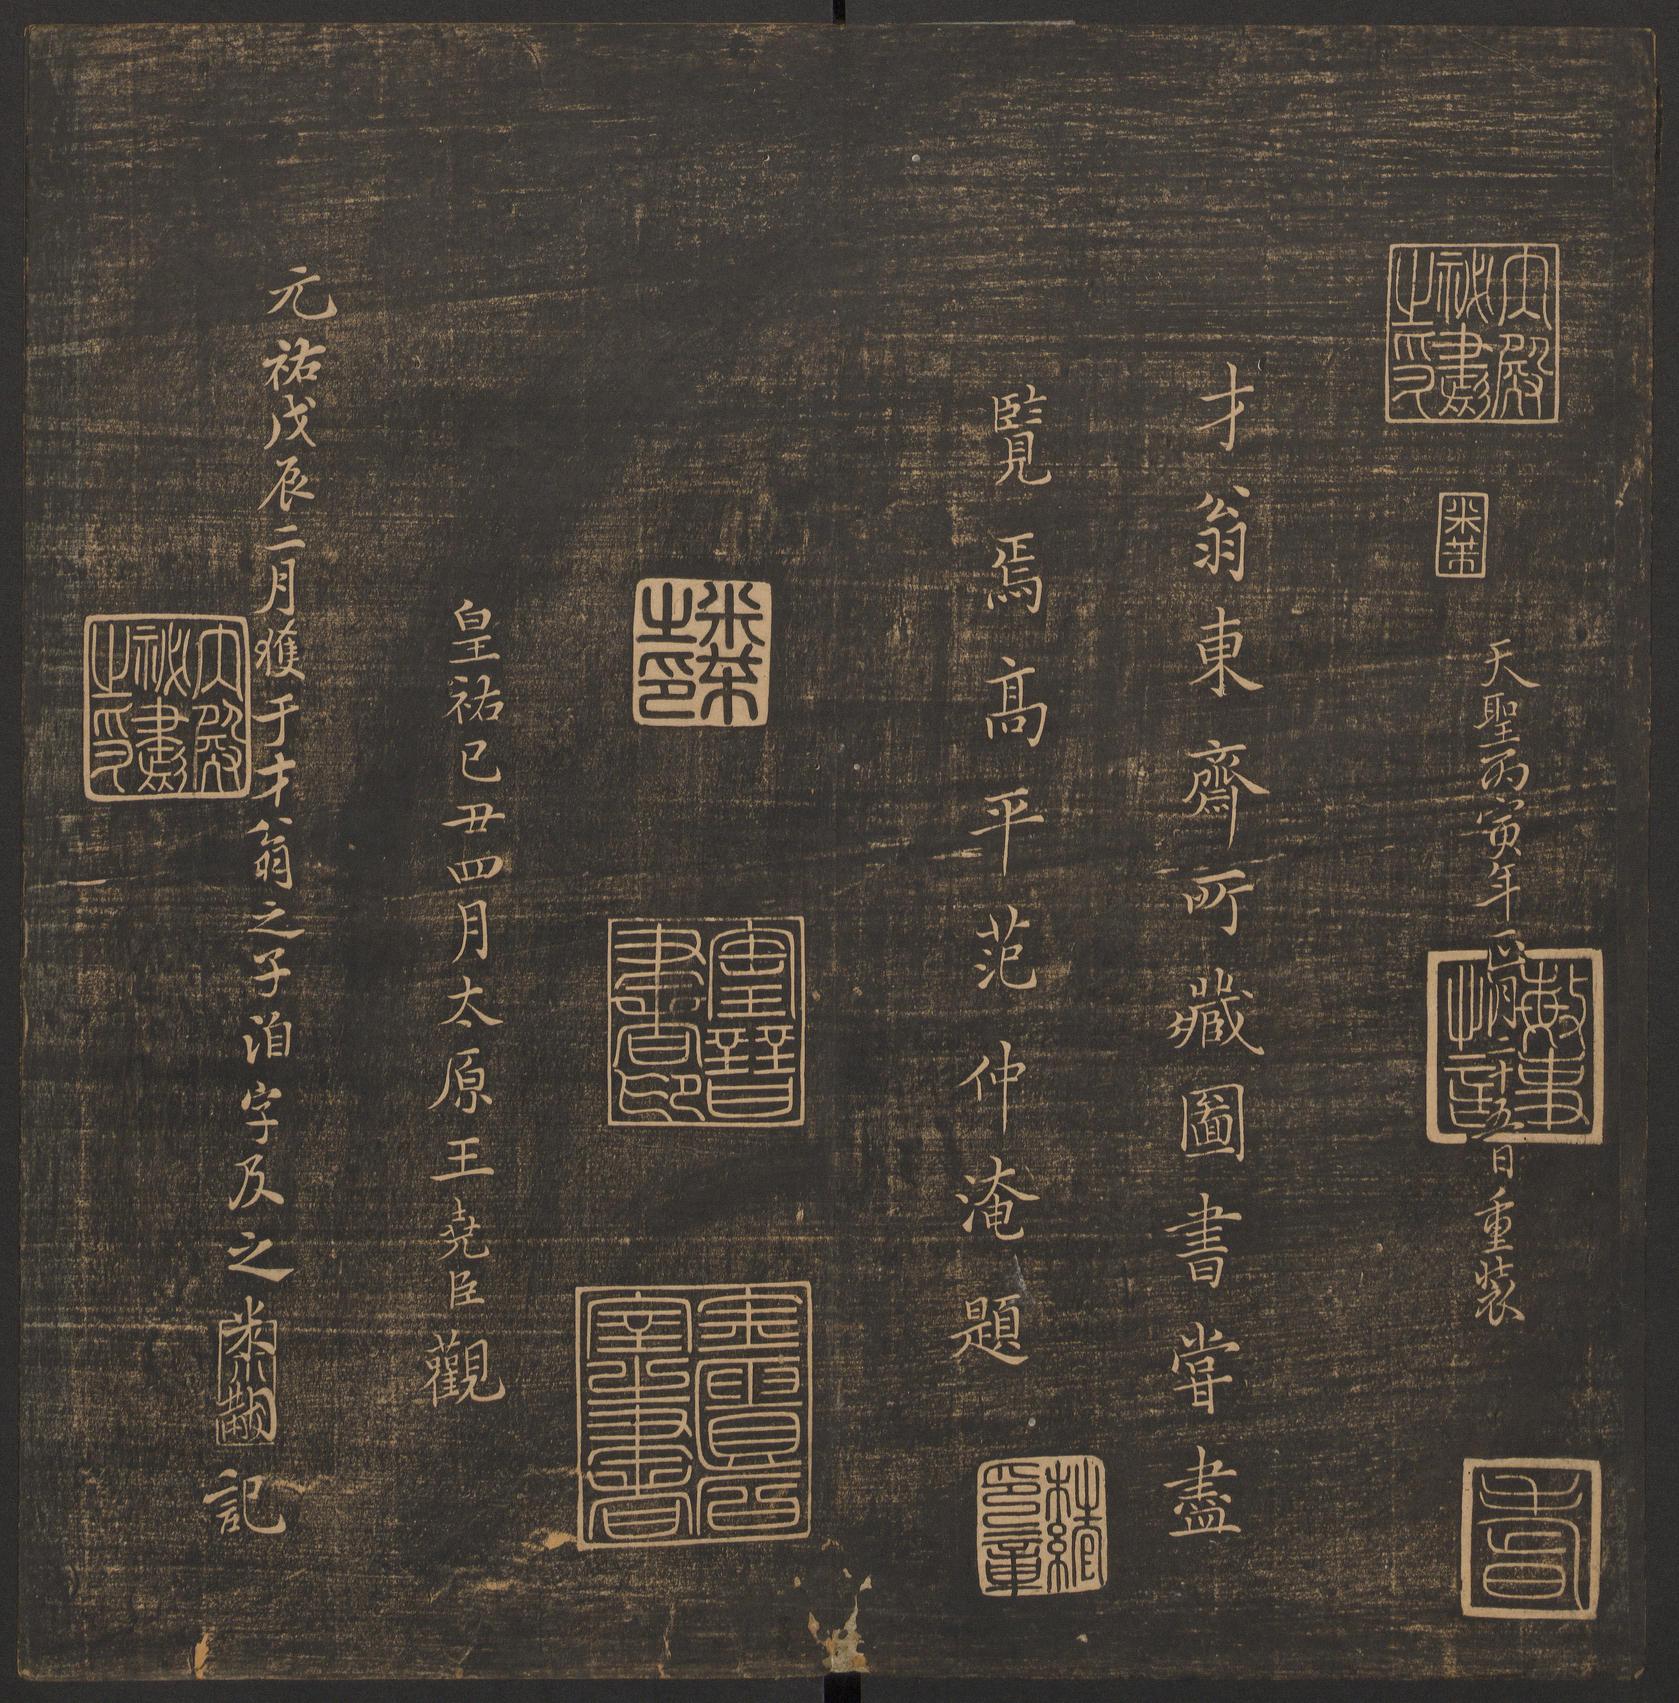 內殿祕書之印
米芾
天聖丙寅年正月二十五日重裝
才翁東齋所藏圖書嘗盡
覽焉高平范仲淹題
米芾之印
皇祐己丑四月太原王堯臣觀
元祐戊辰二月獲于才翁之子洎字及之米黻記
內殿祕書之印